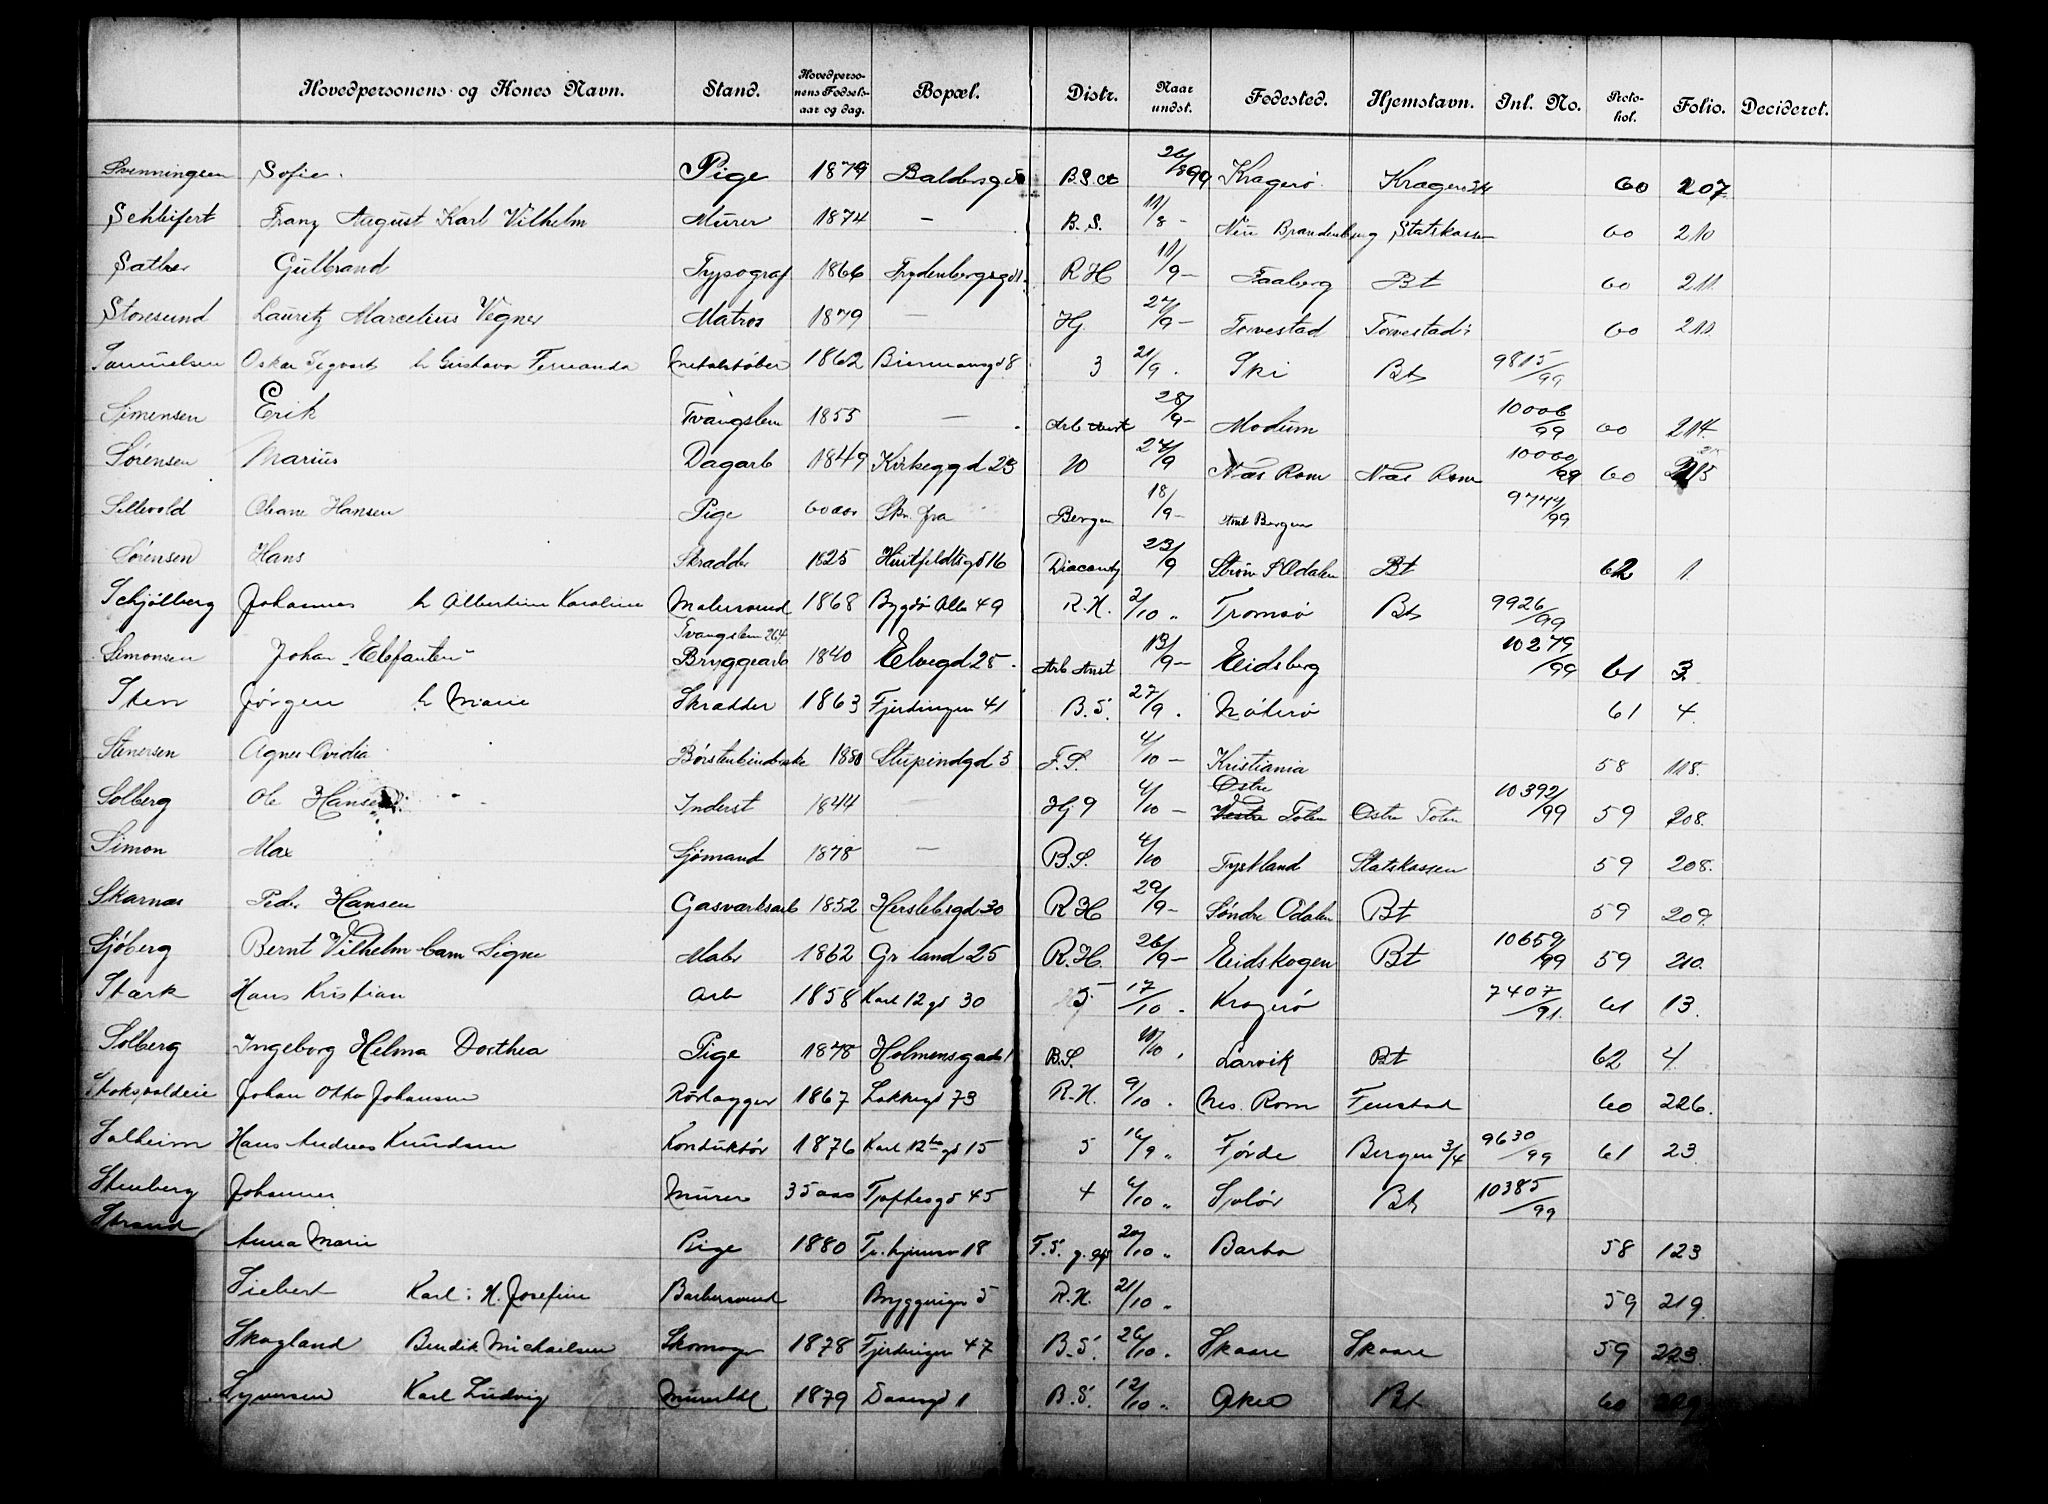 Hovedpersonens og Kones Navn. Stand. Hovedpersonens Fødselsaar og dag. Bopæl. Distr. Naar undst. Fødested. Hjemstavn. Inl. No. Protokol. Folio. Decideret.
Svenningsen Sofie. Pige 1879 B.S. 26/8 99 Kragerø Kragerø 60 207.
Schleifert Franz August Karl Vilhelm Murer 1874 — B.S. 11/8 - Neu Brandenburg Statskassen 60 210
Sather Gulbrand Typograf 1866 R H 11/9 - Faaberg Bt 60 211.
Storesund Lauritz Marcelius Vegner Matros 1879 — Hj. 27/9 - Torvestad Torvestad 60 211.
Samuelsen Oskar Sigvart h Gustava Fernanda Metalstøber 1862 Biermansgd 8 3 21/9 . Ski Bt 9815/99
Simensen Erik Tvangslem 1855 — Arb Anst 28/9 - Modum 10006/99 60 214.
Sørensen Marius Dagarb 1849 Kirkeggd 23 10 27/9 Næs Rom Næs Rom 10000/99 60 215
Sillevold Oleane Hansen Pige 60 aar Skr. fra Bergen 18/9 - Bergen 9744/99
Sørensen Hans Skrædder 1825 Huitfeldtsgd 16 23/9 Strøm S Odalen Bt 62 1.
Schjølberg Johannes h Albertine Karoline Malersvend 1868 Bygdø Alle 49 R.H. 2/10 „ Tromsø Bt 9926/99
Simonsen Johan „Elefanten" Tvangslem 264 Bryggearb 1840 Elvegd 25 . Arb Anst 13/9 - Eidsberg 10279/99 61 3.
Sten Jørgen h Marie Skrædder 1863 Fjerdingen 41 B.S. 27/9 . Nøterø 61 4.
Stenersen Agnes Ovidia Børstenbinderske 1880 Stupindgd 5 F.S. 4/10 - Kristiania 58 118.
Solberg Ole Hansen Inderst 1844 — Hj 9 4/10 - Østre Vestre Toten Østre Toten 10392/99 59 208.
Simon Max Sjømand 1878 — B.S. 4/10 Tyskland Statskassen 59 208.
Skarnæs Peder Hansen Gasværksarb 1852 Herslebsgd 30 R H 29/9 - Søndre Odalen Bt 59 209.
Sjøberg Bernt Vilhelm barn Signe Maler 1862 Grland 25 R.H. 26/9 - Eidskogen Bt 10659/99 59 210.
Stærk Hans Kristian Arb 1858 Karl 12 gd 30 5 17/10 . Kragerø 7407/91. 61 13.
Solberg Ingeborg Helma Dorthea Pige 1878 Holmensgade 1 B.S. 10/10 . Larvik Bt 62 4.
Johan Otto Johansen Rørlægger 1867 Lakkegd 73 R.H. 9/10 . Nes. Rom Fenstad 60 226.
Solheim Hans Andreas Knudsen Konduktør 1876 Karl 12te gd 15 5 16/9 „ Førde Bergen 3/4 9630/99 61 23.
Stenberg Johannes Murer 35 aar Toftesgd 45 4 6/10 „ Solør Bt 10385/99
Strand Anna Marie Pige 1880 18 F.S. 20/10 „ Barbo 58 123
Siebert Karl: H. Josefine Barbersvend 5 R.H. 21/10 „ 59 219.
Skogland Bendik Michaelsen Skomager 1878 Fjerdingen 47 B.S. 26/10 . Skaare Skaare 59 223.
Syversen Karl Ludvig 1879 Daasgd 1 B.S. 12/10 „ Bt 60 229